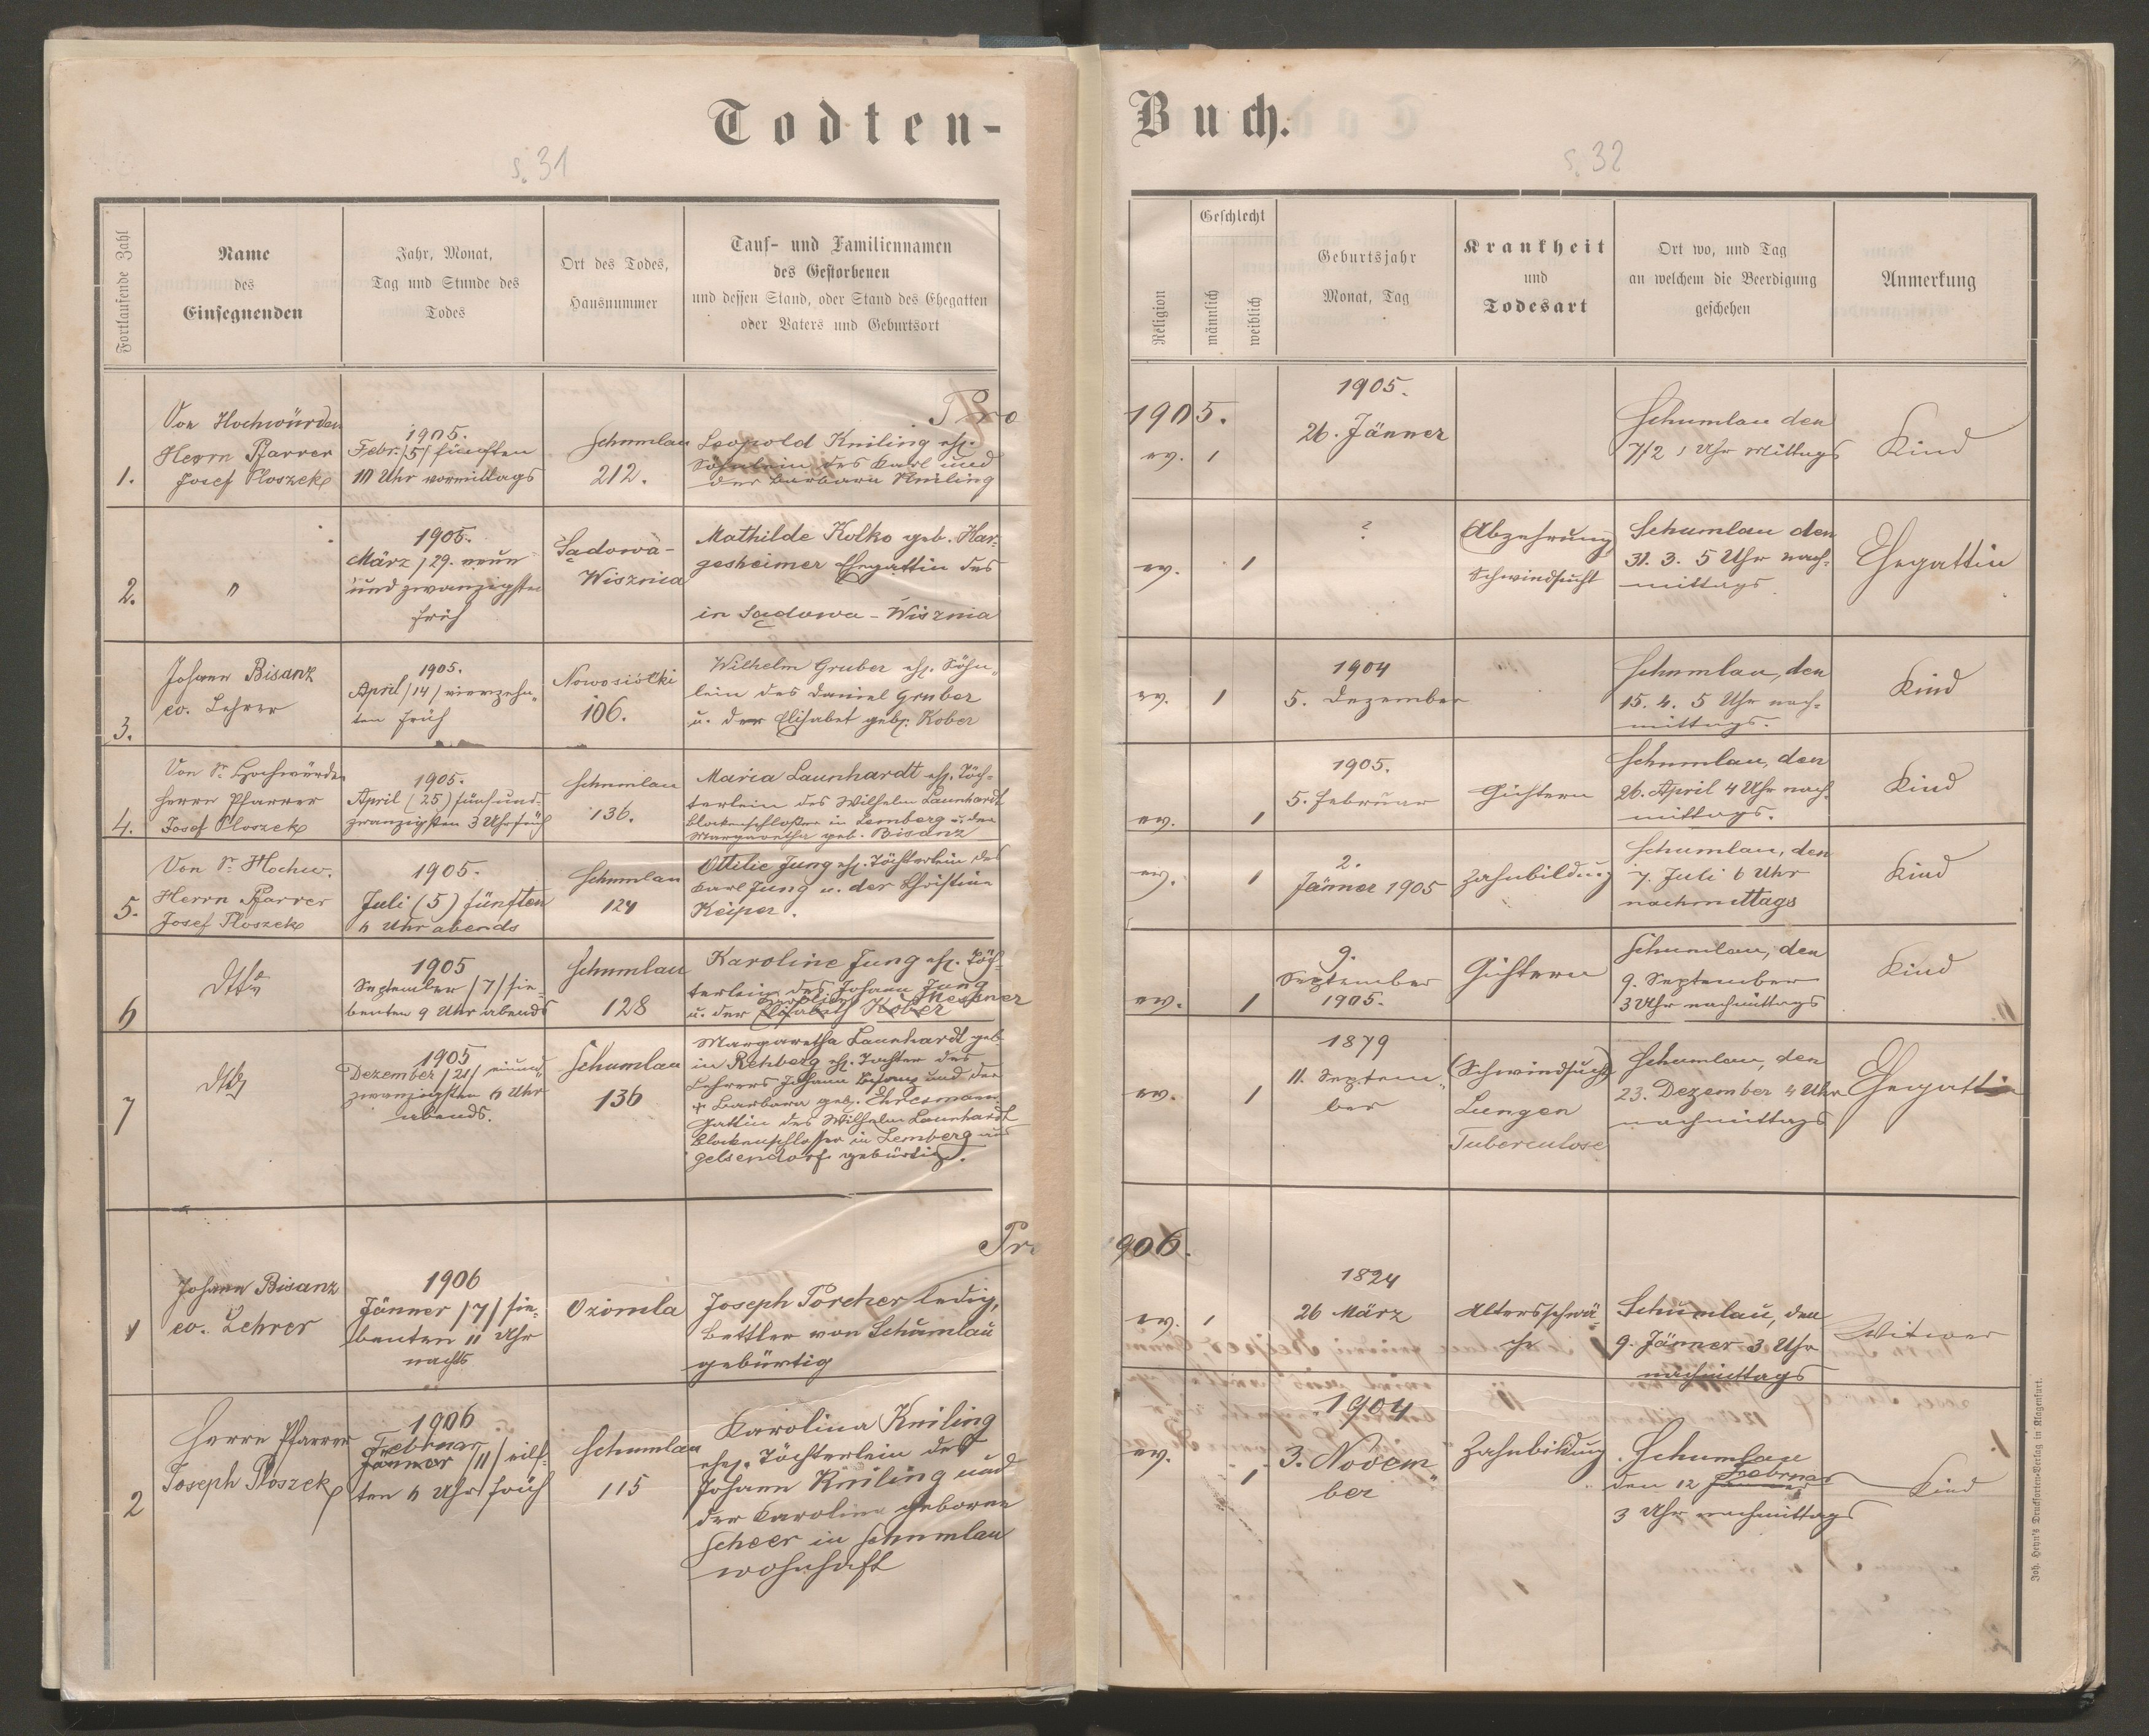 Todten-
Buch.
s. 31
s. 32
Fortlaufende Zahl
Name
des
Einsegnenden
Jahr, Monat,
Tag und Stunde des
Todes
Ort des Todes,
Hausnummer
Tauf- und Familiennamen
des Gestorbenen
und dessen Stand, oder Stand des Ehegatten
oder Vaters und Geburtsort
Religion
Geschlecht
männlich
weiblich
Geburtsjahr
Monat, Tag
Krankheit
und
Todesart
Ort wo, und Tag
an welchem die Beerdigung
geschehen
Anmerkung
Pro
1905.
1.
Von Hochwürden
Herrn Pfarrer
Josef Ploszek
1905.
Febr. /5/ fünften
10 Uhr vormittags
Schumlau
212.
Leopold Kniling ehl.
Söhnlein des Karl und
der Barbara Kniling
ev. 1
1905.
26. Jänner
Schumlau den
7/2 1 Uhr Mittags
Kind
2.
"
1905.
März /29. neun
und zwanzigsten
früh
Sadowa-
Wisznia
Mathilde Kolko geb. Har-
gesheimer Ehegattin des
in Sadowa-Wisznia
ev. 1
?
Abzehrung
Schwindsucht
Schumlau den
31. 3. 5 Uhr nach-
mittags.
Ehegattin
3.
Johann Bisanz
ev. Lehrer
1905.
April /14/ vierzehn-
ten früh
Nowosiółki
106.
Wilhelm Gruber ehl. Söhn-
lein des Daniel Gruber
u. der Elisabet geb. Kober
ev. 1
1904
5. Dezember
Schumlau, den
15. 4. 5 Uhr nach-
mittags.
Kind
4.
Von Sr. Hochwürden
Herrn Pfarrer
Josef Ploszek
1905.
April (25) fünfund-
zwanzigsten 3 Uhr früh
Schumlau
136.
Maria Launhardt ehl. Töch-
terlein des Wilhelm Launhardt
Blockenschlosser in Lemberg u. der
Margaretha geb. Bisanz
ev. 1
1905.
5. Februar
Gichtern
Schumlau, den
26. April 4 Uhr nach-
mittags.
Kind
5.
Von Sr. Hochw.
Herrn Pfarrer
Josef Ploszek
1905.
Juli (5) fünften
6 Uhr abends
Schumlau
124
Ottilie Jung ehl. Töchterlein des
Karl Jung u. der Christine
Keiper.
ev. 1
2.
Jänner 1905
Zahnbildung
Schumlau, den
7. Juli 6 Uhr
nachmittags
Kind
6
1905
September /7/ sie-
benten 9 Uhr abends
Schumlau
128
Karoline Jung ehl. Töch-
terlein des Johann Jung
Karoline Messner
u. der Elisabeth Kober
ev. 1
9.
September
1905.
Gichtern
Schumlau, den
9. September
3 Uhr nachmittags
Kind
7
1905
Dezember /21/ einund-
zwanzigsten 6 Uhr
abends.
Schumlau
136
Margaretha Launhardt geb.
in Rehberg ehl. Tochter des
Lehrers Johann Bisanz und der
+ Barbara geb. Ehresmann.
Gattin des Wilhelm Launhardt
Blockenschlosser in Lemberg aus
Gelsendorf gebürtig.
ev. 1
1879
11. Septem-
ber
(Schwindsucht)
Lungen
Tuberculose
Schumlau, den
23. Dezember 4 Uhr
nachmittags
Ehegattin
Pr.
1906.
1
Johann Bisanz
ev. Lehrer
1906
Jänner /7/ sie-
benten 11 Uhr
nachts
Ozomla
Joseph Porcher ledig,
Bettler von Schumlau
gebürtig
ev. 1
1824
26 März
Altersschwä-
che
Schumlau, den
9. Jänner 3 Uhr
nachmittags
Witwer
2
Herrn Pfarrer
Joseph Ploszek
1906
Februar
Jänner /11/ eilf-
ten 6 Uhr früh
Schumlau
115
Karolina Kniling
ehel. Töchterlein des
Johann Kniling und
der Karolina geborene
Scheer in Schumlau
wohnhaft
ev. 1
1904
3. Novem-
ber
Zahnbildung
Schumlau
den 12 Februar
Jänner
3 Uhr nachmittags
Kind
Joh. Heyn's Drucksorten-Verlag in Klagenfurt.